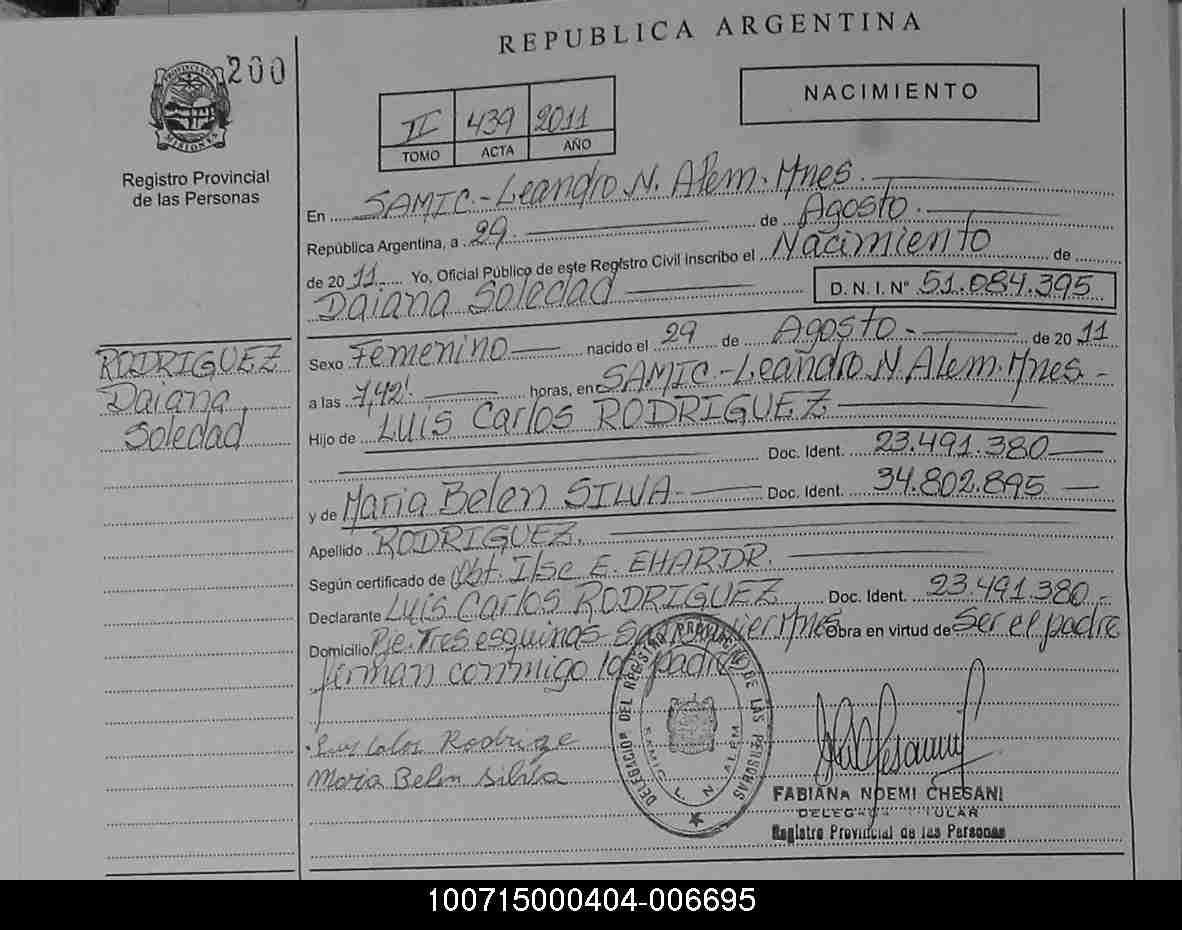 REPUBLICA ARGENTINA
200
PROVINCIA DE MISIONES
Registro Provincial
de las Personas
NACIMIENTO
II 439 2011
TOMO ACTA AÑO
En SAMIC.-Leandro N. Alem. Mnes.
República Argentina, a 29 de Agosto.
de 2011 Yo, Oficial Público de este Registro Civil inscribo el Nacimiento de
Daiana Soledad D. N. I. N° 51.084.395
RODRIGUEZ
Daiana
Soledad
Sexo Femenino nacido el 29 de Agosto- de 2011
a las 7,42! horas, en SAMIC-Leandro N. Alem. Mnes-
Hijo de Luis Carlos RODRIGUEZ
Doc. Ident. 23.491.380
y de Maria Belen SILVA- Doc. Ident. 34.802.895
Apellido RODRIGUEZ.
Según certificado de Obt. Ilse E. EHARDR.
Declarante Luis Carlos RODRIGUEZ Doc. Ident. 23.491.380.-
Domicilio Pje. Tres esquinas- Mnes Obra en virtud de Ser el padre
firman conmigo los padres
Luis Carlos Rodrigue
Maria Belen Silva
DELEGACION DEL REGISTRO PROVINCIAL DE LAS PERSONAS
SAMIC L. N. ALEM
FABIANA NOEMI CHESANI
DELEGADA TITULAR
Registro Provincial de las Personas
100715000404-006695